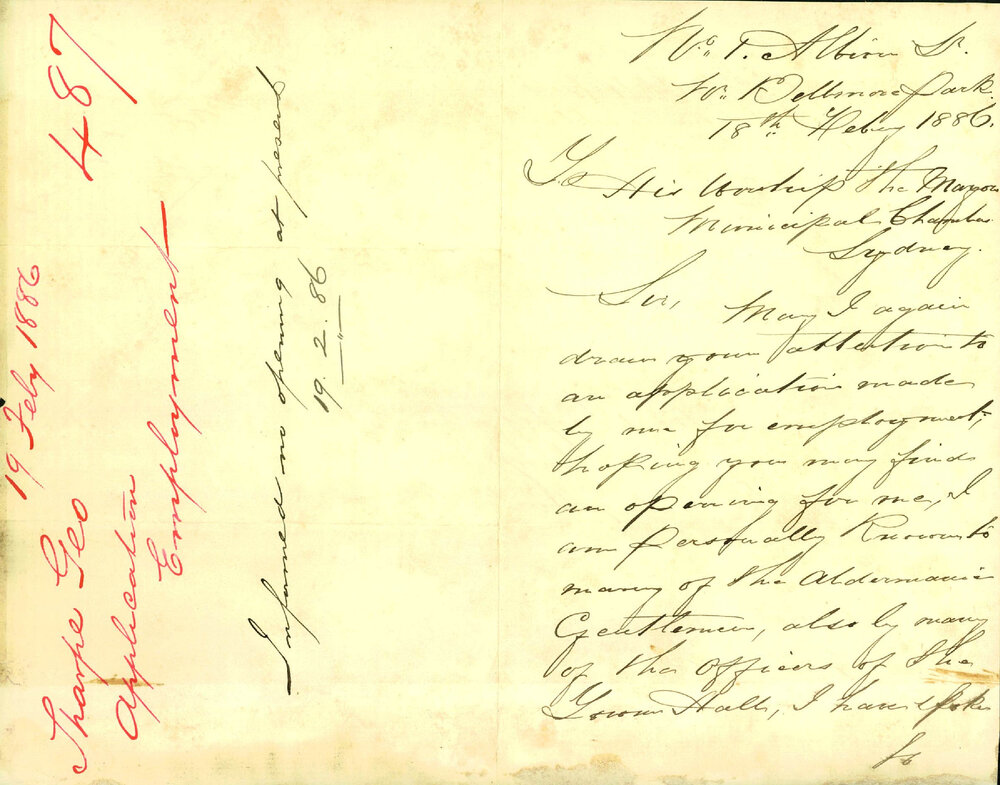 487
19 Feby 1886
Sharpe Geo
Application
Employment
Informed no opening at present
19.2.86
Albion St.
Bellmore Park
18th Feby 1886.
To His Worship The Mayor
Municipal Chamber
Sydney.
Sir, May I again
draw your attention to
an application made
by me for employment;
hoping you may find
an opening for me, I
am personally Known to
many of the Aldermanic
Gentlemen, also by many
of the Officers of the
Town Hall, I have spoke
to